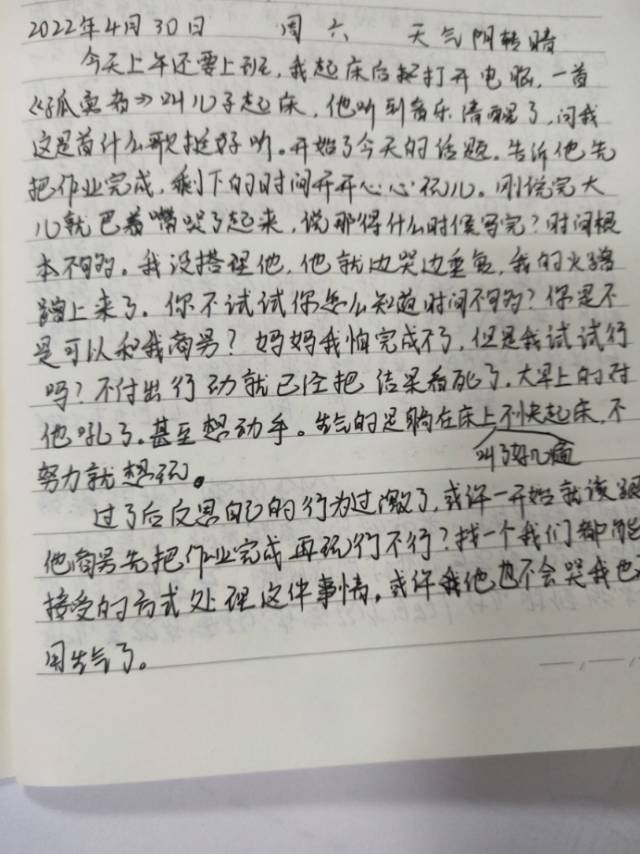 2022年4月30日 周六 天气阴转晴
今天上午还要上班,我起床后起打开电脑,一首
《孤勇者》叫儿子起床,他听到音乐清醒了,问我
这是首什么歌挺好听。开始了今天的话题。告诉他先
把作业完成,剩下的时间开开心心玩儿。刚说完大
儿就巴着嘴哭了起来,说那得什么时候写完?时间根
本不够。我没搭理他,他就边哭边重复,我的火蹭
蹭上来了。你不试试你怎么知道时间不够?你是不
是可以和我商另?妈妈我怕完成不了,但是我试试行
吗?不付出行动就已经把结果看死了。大早上的对
他吼了。甚至想动手。生气的是躺在床上不快起床,不
叫了好几遍
努力就想玩。
过了后反思自己的行为过激了,或许一开始就该跟
他商另先把作业完成再玩行不行?找一个我们都能
接受的方式处理这件事情,或许我他也不会哭我也
用生气了。